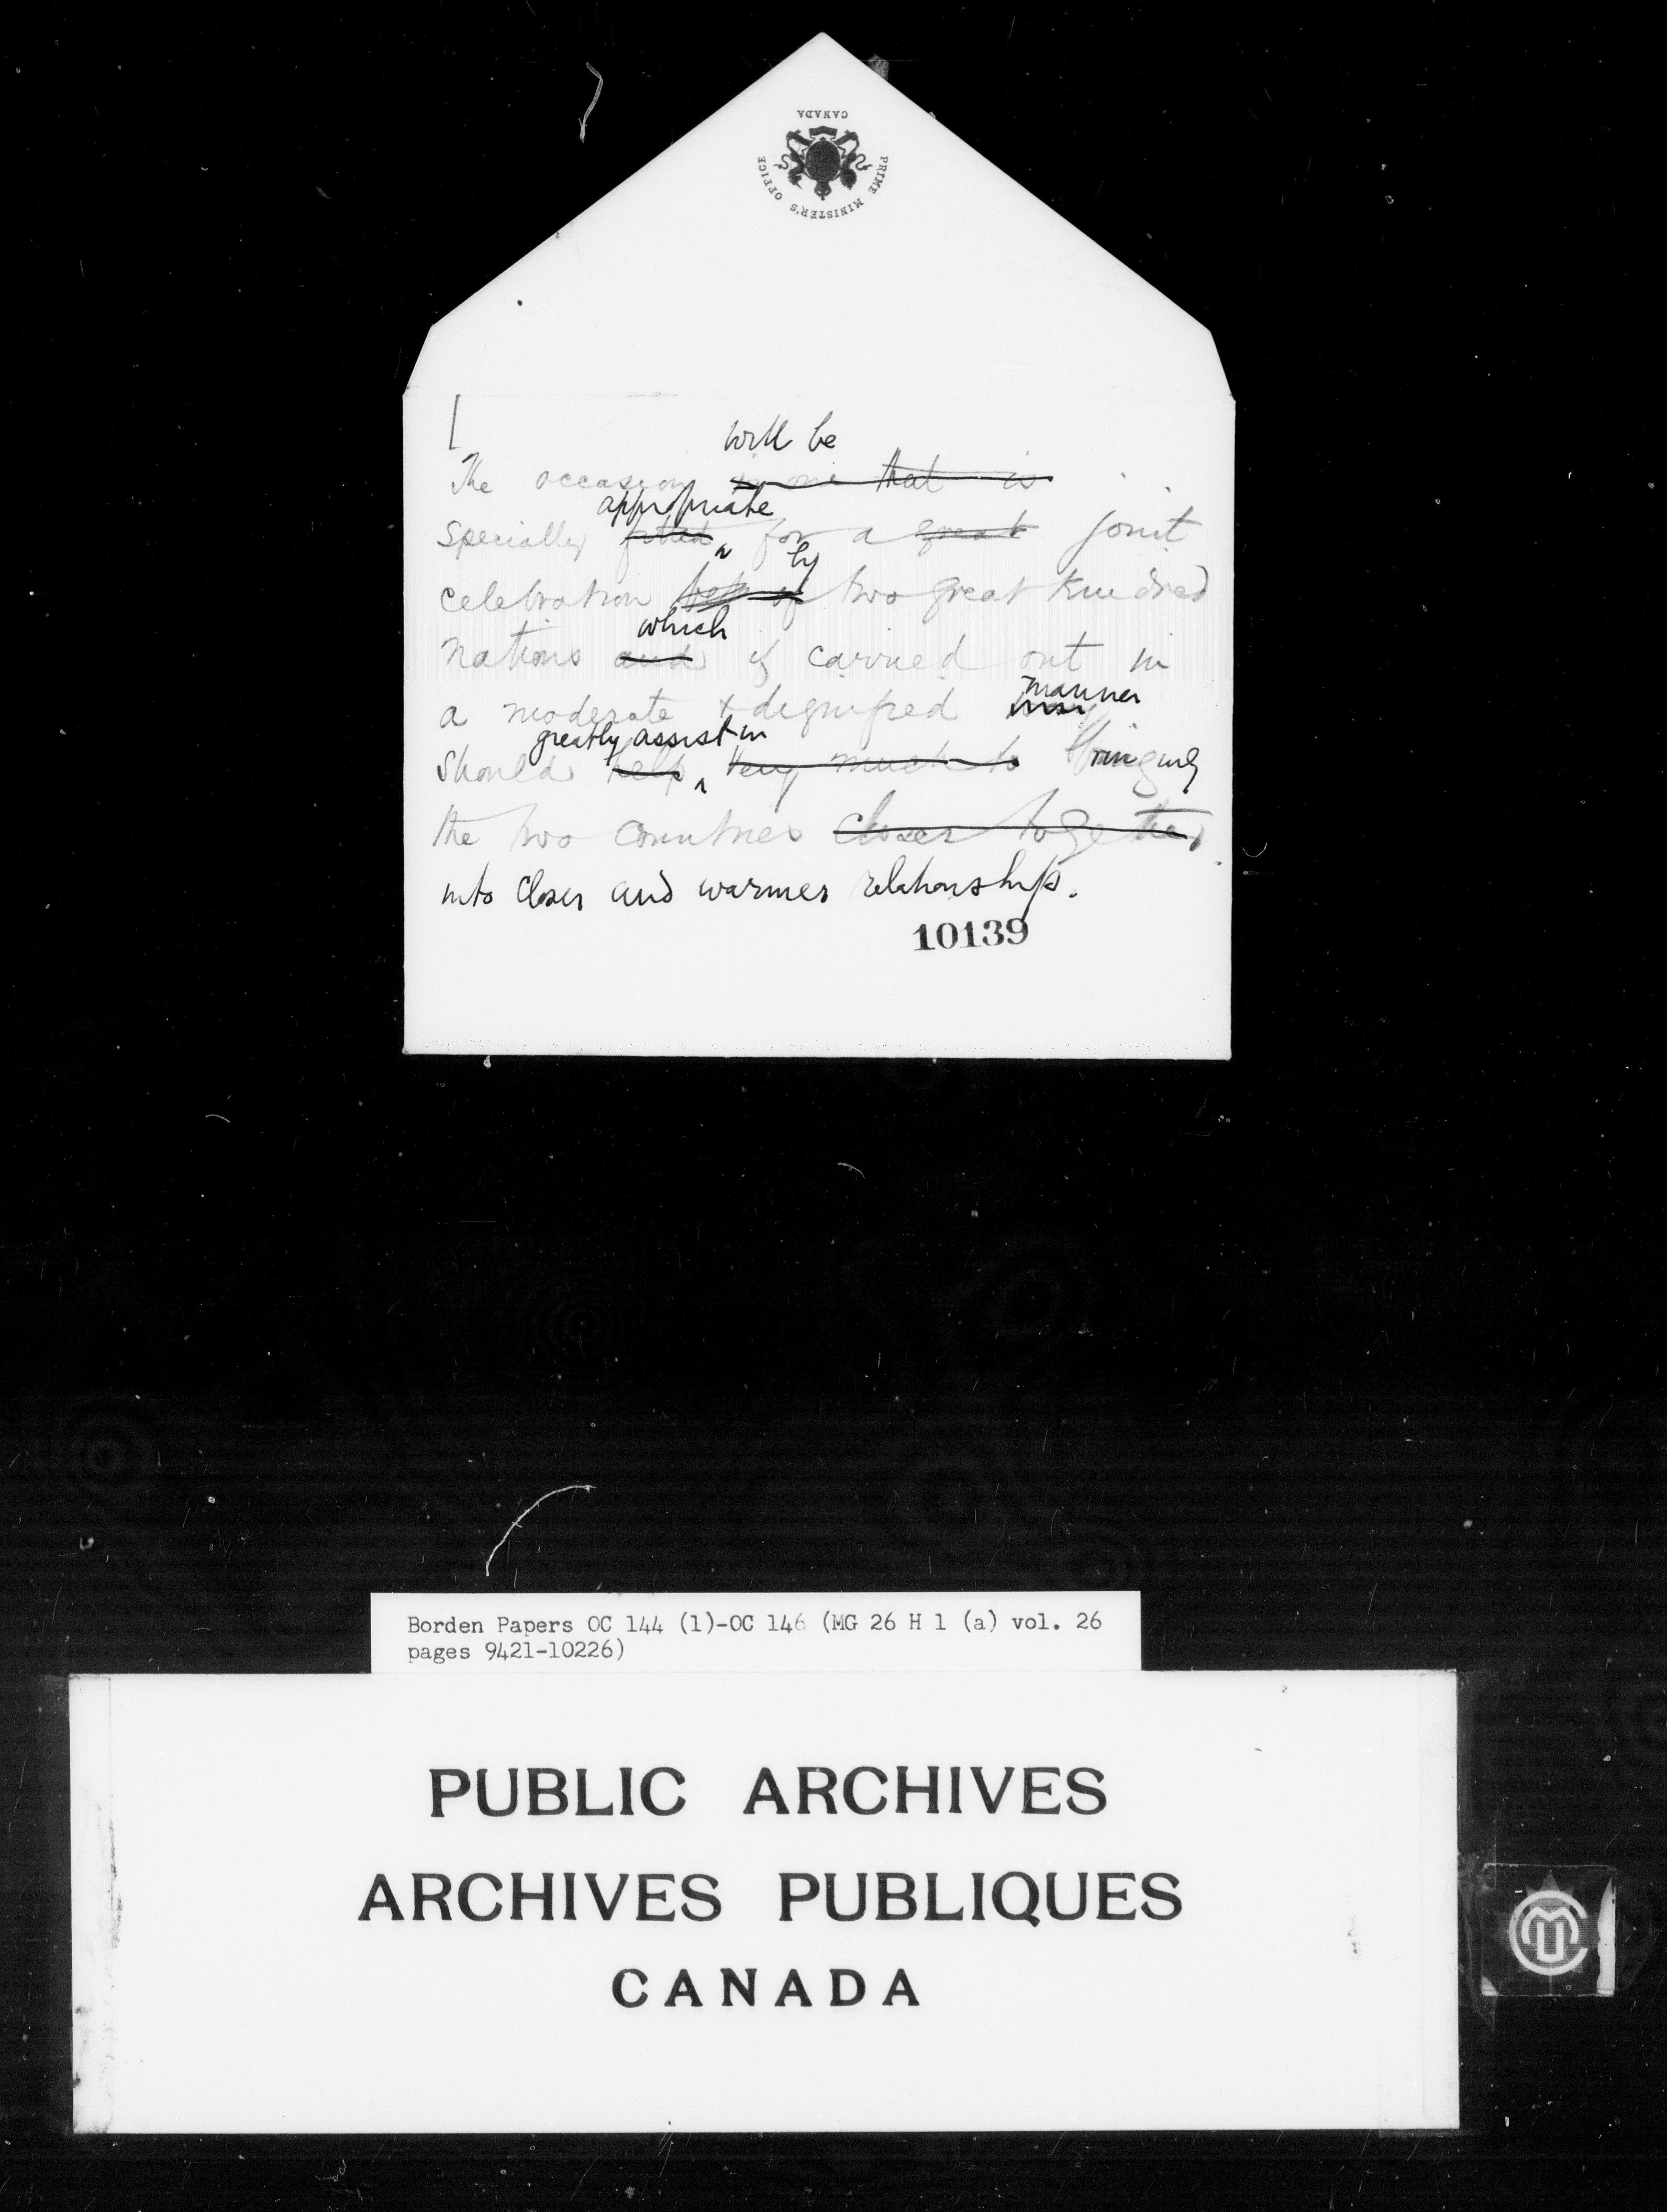 PRIME MINISTER'S OFFICE
CANADA
will be
The occasion is one that is
appropriate
specially fitted for a great joint
by
celebration of two great kindred
which
nations and if carried out in
manner
a moderate & dignified
greatly assist in
should help very much to bringing
the two countries closer together
into closer and warmer relationship.
10139
Borden Papers OC 144 (1)-OC 146 (MG 26 H 1 (a) vol. 26
pages 9421-10226)
PUBLIC ARCHIVES
ARCHIVES PUBLIQUES
CANADA